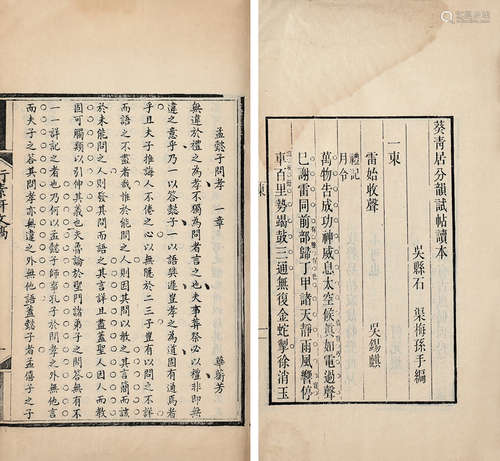 葵青居分韻試帖讀本
吳縣石 渠梅孫手編
一東
雷始收聲 吳錫麒
禮記
月令
萬物告成功神威息太空候眞如電過聲
巳謝雷同前部歸丁甲諸天靜雨風響停
車百里勢竭鼓三通無復金蛇掣徐消玉
東
一
孟懿子問孝 一章
無違於禮之為孝不獨為問者言之也夫事葬祭必以禮非即無
違之意乎乃一以答懿子一以語樊遲豈孝之為道固有通焉者
乎且夫子推誨人不倦之心以無隱於二三子豈有以問之不詳
而語之不盡者哉惟於能問之人則因其問以救之其言簡而該
於未能問之人則發其問而語之其言詳且盡蓋聖人因人而教
因可觸類以引伸其義也夫魯論於聖門諸弟子之問答無有不
一一詳記之者也乃何以孟懿子師事孔子於其問孝
而夫子之答其問孝亦無違之外無他語蓋懿子者孟僖子之子
文稿